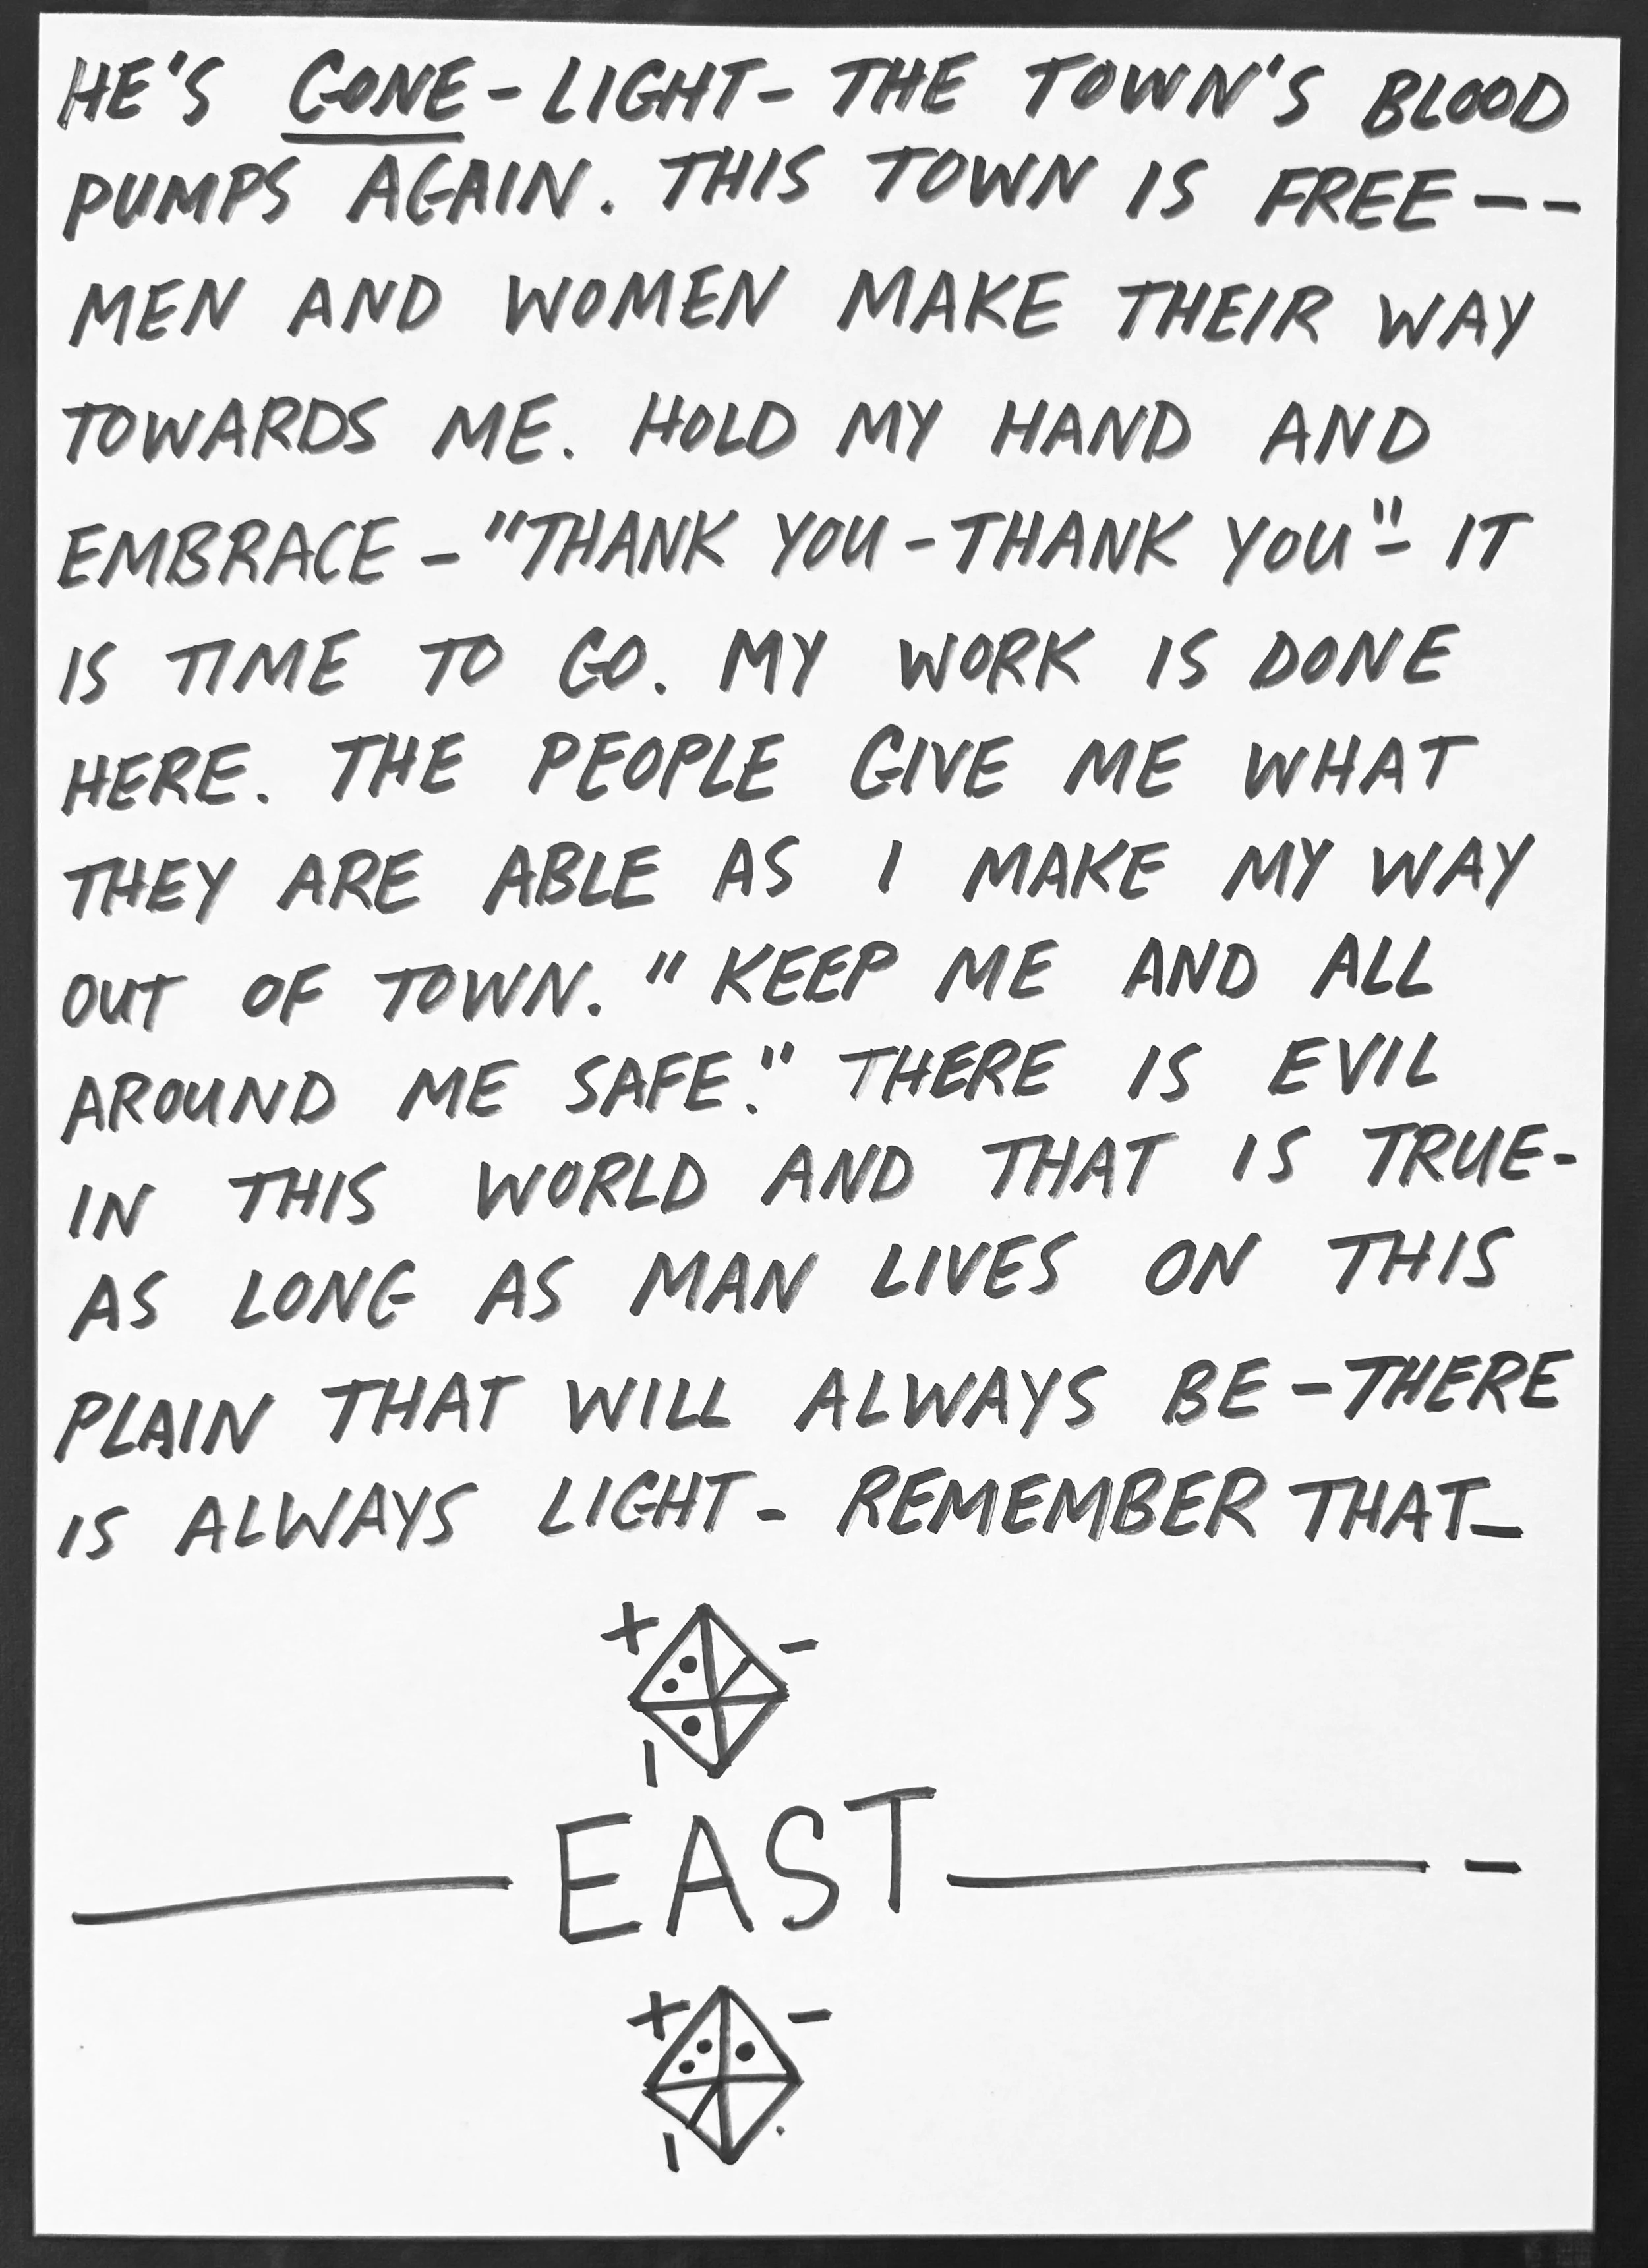 HE'S GONE - LIGHT - THE TOWN'S BLOOD
PUMPS AGAIN. THIS TOWN IS FREE --
MEN AND WOMEN MAKE THEIR WAY
TOWARDS ME. HOLD MY HAND AND
EMBRACE - "THANK YOU - THANK YOU" - IT
IS TIME TO GO. MY WORK IS DONE
HERE. THE PEOPLE GIVE ME WHAT
THEY ARE ABLE AS I MAKE MY WAY
OUT OF TOWN. "KEEP ME AND ALL
AROUND ME SAFE." THERE IS EVIL
IN THIS WORLD AND THAT IS TRUE -
AS LONG AS MAN LIVES ON THIS
PLAIN THAT WILL ALWAYS BE - THERE
IS ALWAYS LIGHT - REMEMBER THAT -
+ -
I
EAST -
+ -
I